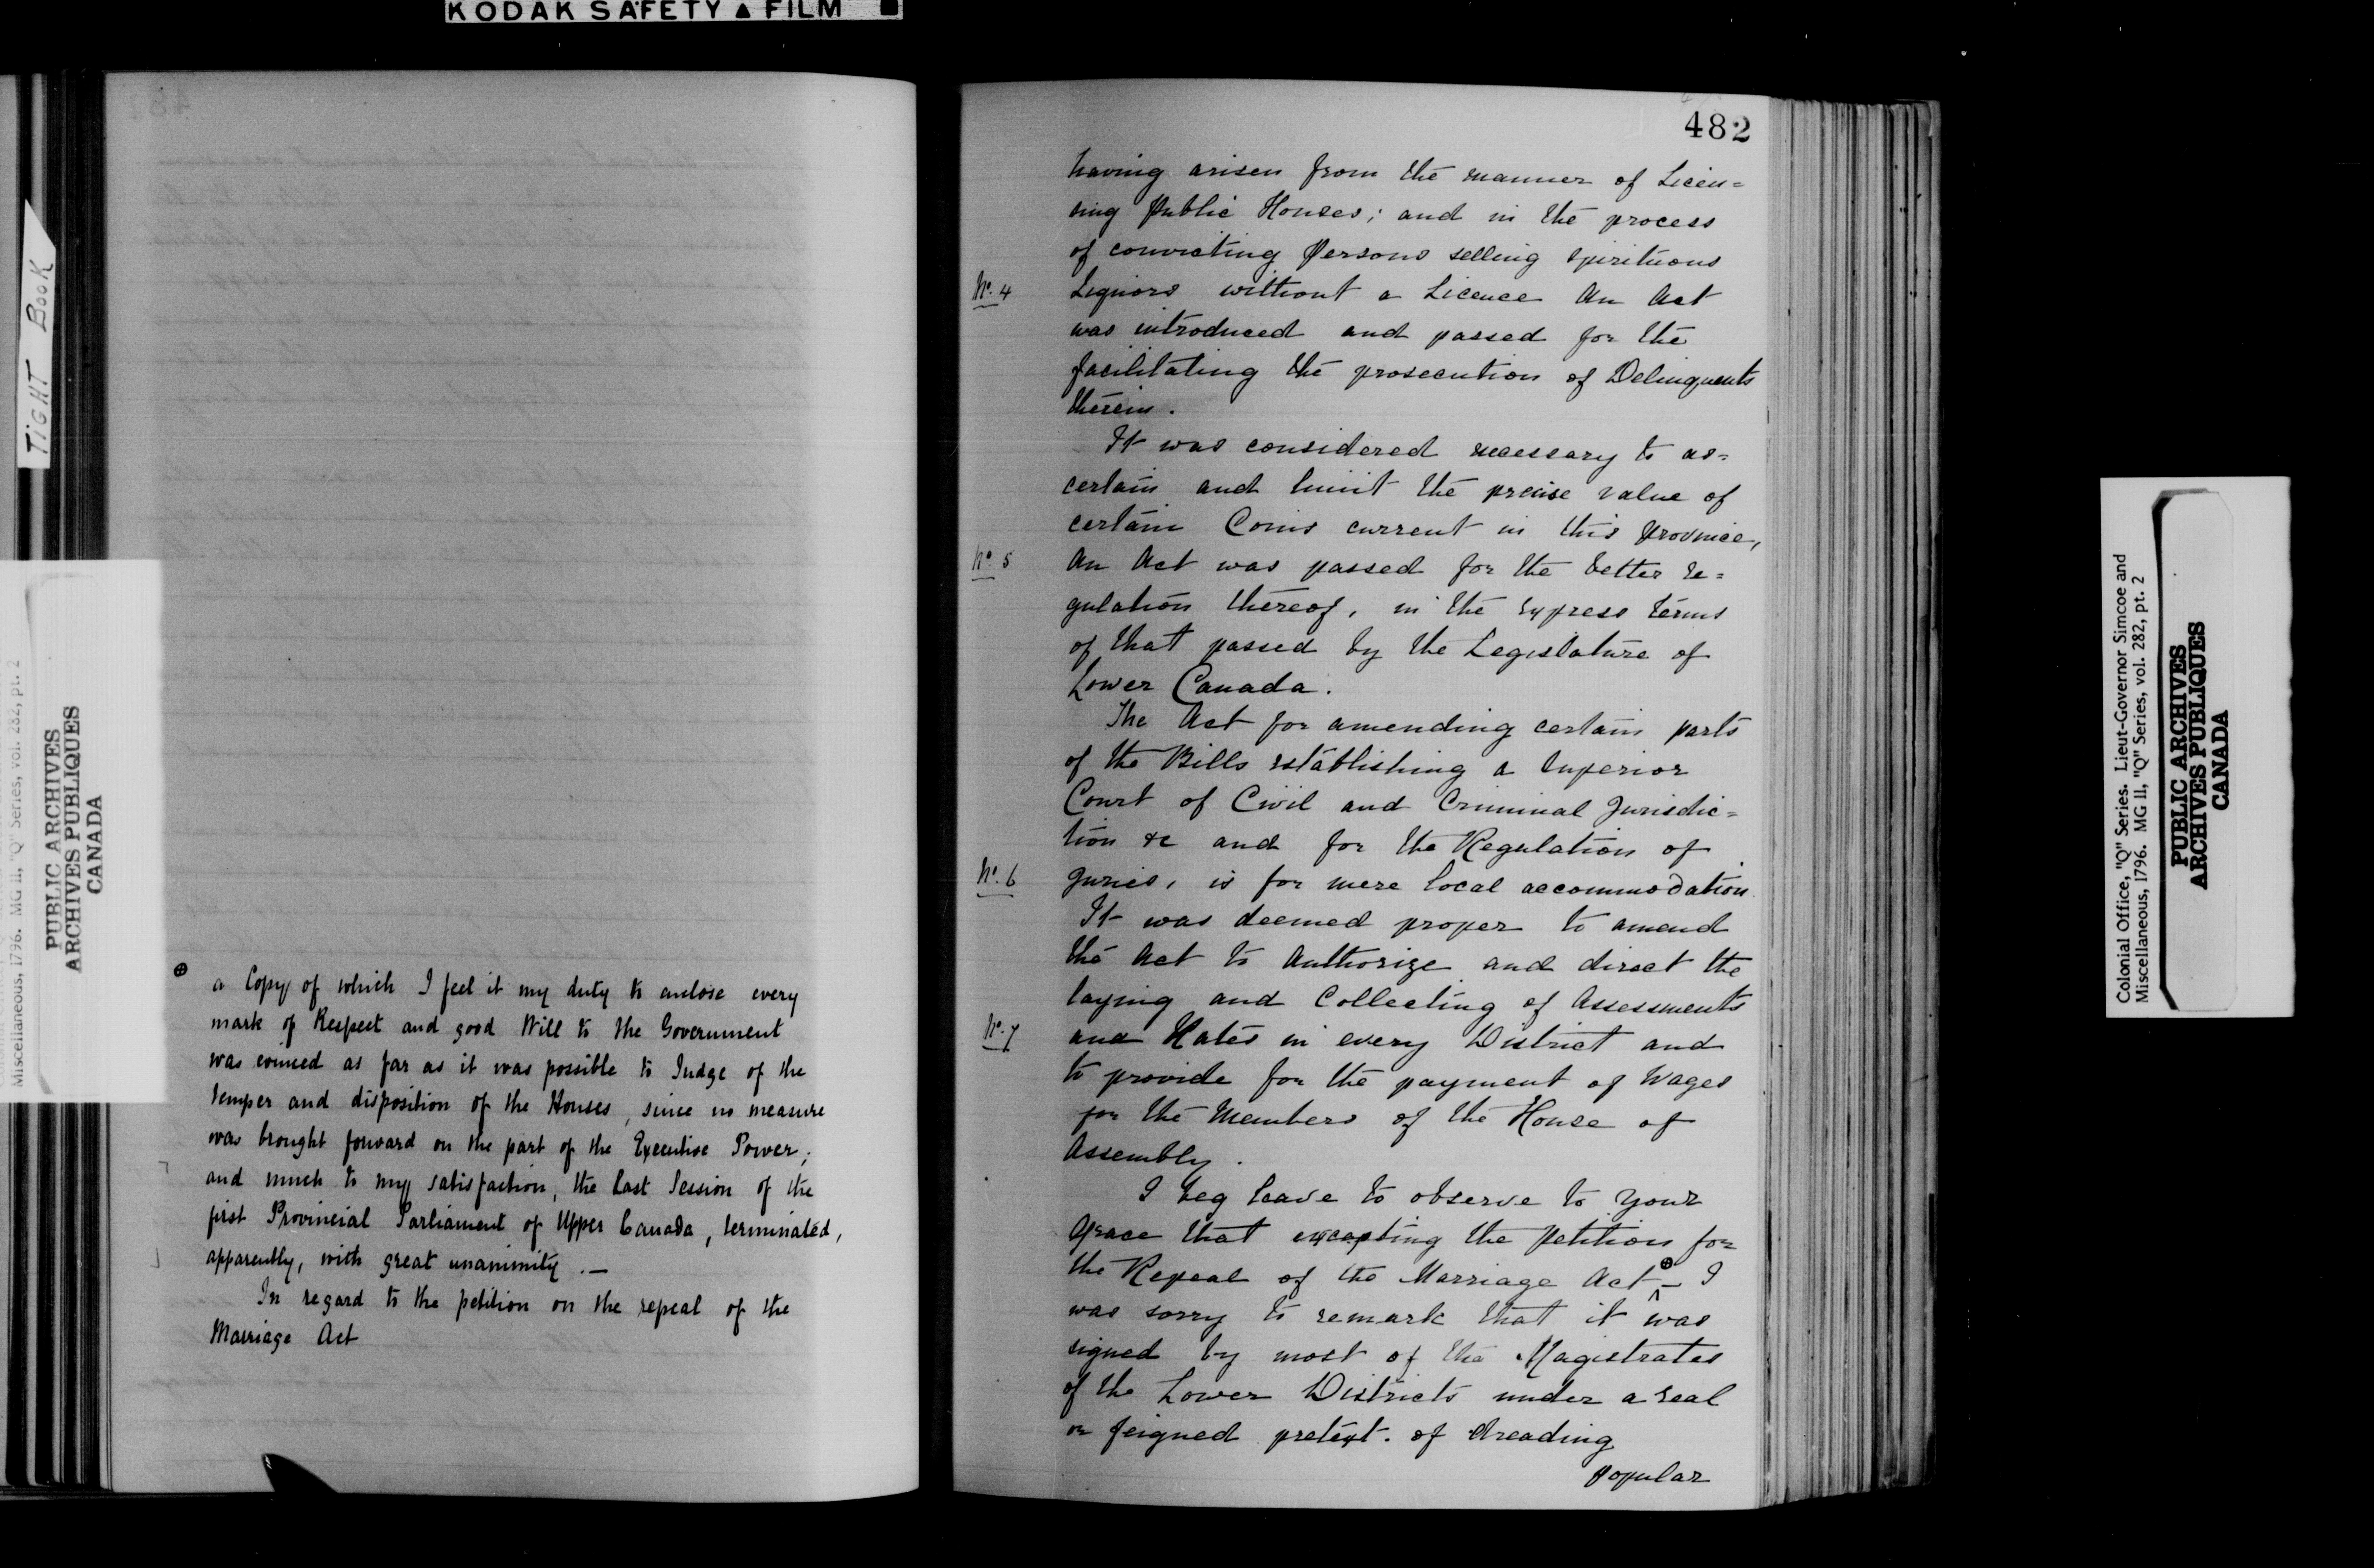 KODAK SAFETY ▲ FILM
TIGHT BOOK
Miscellaneous, 1796. MG II, "Q" Series, vol. 282, pt. 2
PUBLIC ARCHIVES
ARCHIVES PUBLIQUES
CANADA
⊕ a Copy of which I feel it my duty to enclose every
mark of Respect and good Will to the Government
was evinced as far as it was possible to Judge of the
temper and disposition of the Houses, since no measure
was brought forward on the part of the Executive Power;
and much to my satisfaction, the last Session of the
first Provincial Parliament of Upper Canada, terminated,
apparently, with great unanimity.—
In regard to the petition on the repeal of the
Marriage Act
482
having arisen from the manner of Licen=
sing Public Houses; and in the process
of convicting Persons selling spirituous
No. 4 Liquors without a Licence An Act
was introduced and passed for the
facilitating the prosecution of Delinquents
therein.
It was considered necessary to as=
certain and limit the precise value of
certain Coins current in this Province,
No. 5 An Act was passed for the better re=
gulation thereof, in the express terms
of that passed by the Legislature of
Lower Canada.
The Act for amending certain parts
of the Bills establishing a Superior
Court of Civil and Criminal Jurisdic=
tion &c and for the Regulation of
No. 6 Juries, is for mere local accommodation.
It was deemed proper to amend
the Act to Authorize and direct the
laying and Collecting of Assessments
No. 7 and Rates in every District and
to provide for the payment of Wages
for the Members of the House of
Assembly.
I beg leave to observe to Your
Grace that excepting the Petition for
the Repeal of the Marriage Act ⊕ ^ – I
was sorry to remark that it was
signed by most of the Magistrates
of the Lower Districts under a real
or feigned pretext. of dreading
popular
Colonial Office, "Q" Series. Lieut-Governor Simcoe and
Miscellaneous, 1796. MG II, "Q" Series, vol. 282, pt. 2
PUBLIC ARCHIVES
ARCHIVES PUBLIQUES
CANADA